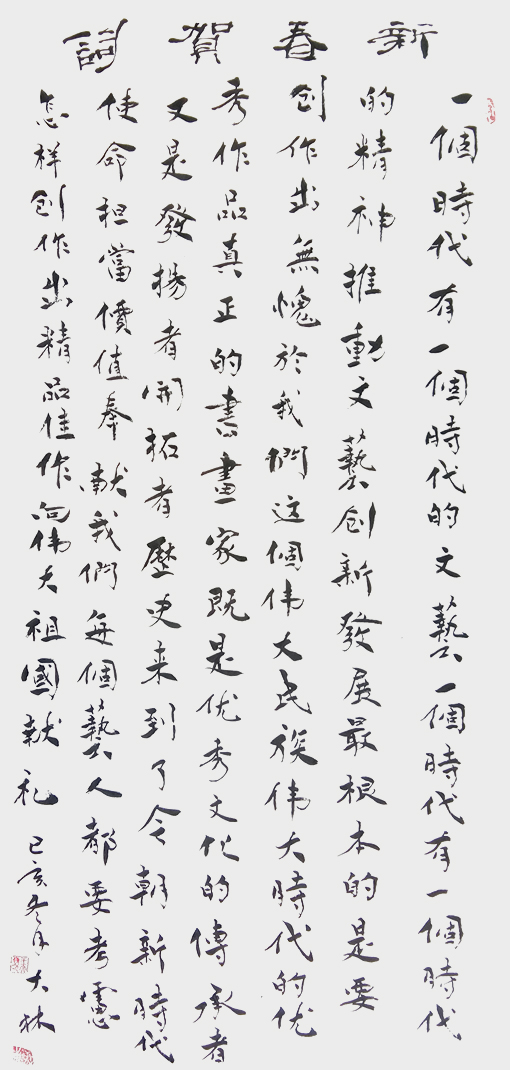 新春賀詞
一個時代有一個時代的文藝一個時代有一個時代
的精神推動文藝创新發展最根本的是要
创作出無愧於我們这個伟大民族伟大時代的优
秀作品真正的書畫家既是优秀文化的傳承者
又是發揚者開拓者歷史来到了今朝新時代
使命担當價值奉献我們每個藝人都要考慮
怎样创作出精品佳作向伟大祖國献礼
己亥冬月大林